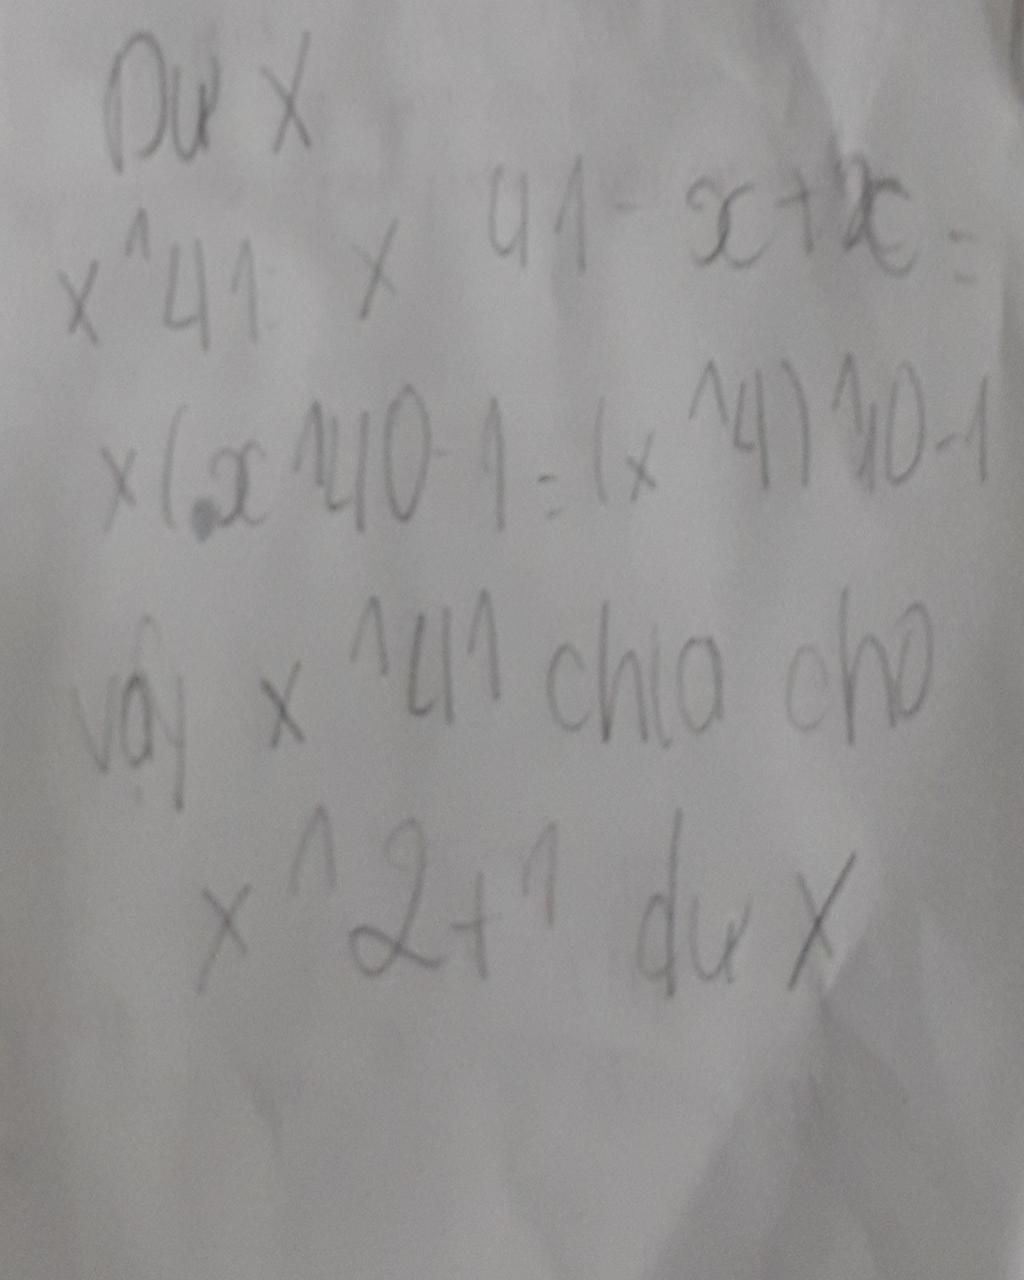 Dư x
x^41 x 41 - x + x =
x(x^40 - 1 = (x^4)^10 - 1
vậy x^41 chia cho
x^2+1 dư x